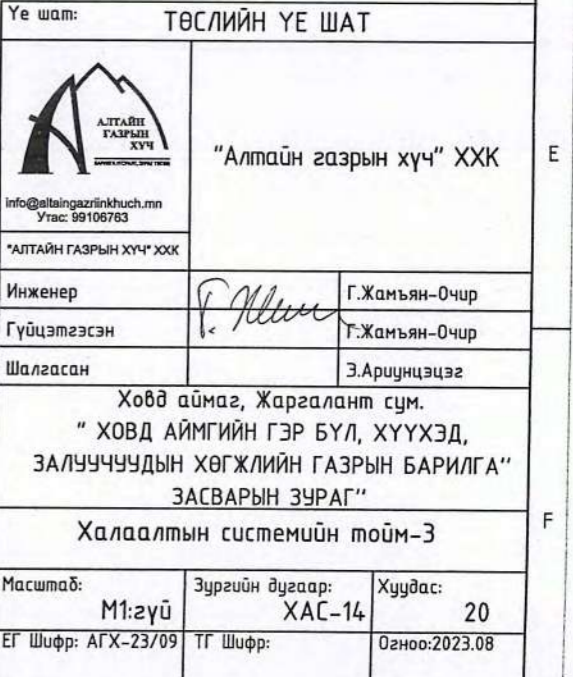 Үе шат:
ТӨСЛИЙН ҮЕ ШАТ
АЛТАЙН
ГАЗРЫН
ХҮЧ
info@altaingazriinkhuch.mn
Утас: 99106763
"АЛТАЙН ГАЗРЫН ХҮЧ" ХХК
"Алтайн газрын хүч" ХХК
E
Инженер
Г.Жамъян-Очир
Гүйцэтгэсэн
Г.Жамъян-Очир
Шалгасан
Э.Ариунцэцэг
Ховд аймаг, Жаргалант сум.
" ХОВД АЙМГИЙН ГЭР БҮЛ, ХҮҮХЭД,
ЗАЛУУЧУУДЫН ХӨГЖЛИЙН ГАЗРЫН БАРИЛГА"
ЗАСВАРЫН ЗУРАГ"
F
Халаалтын системийн тойм-3
Масштаб:
М1:гүй
Зургийн дугаар:
ХАС-14
Хуудас:
20
ЕГ Шифр: АГХ-23/09
ТГ Шифр:
Огноо:2023.08